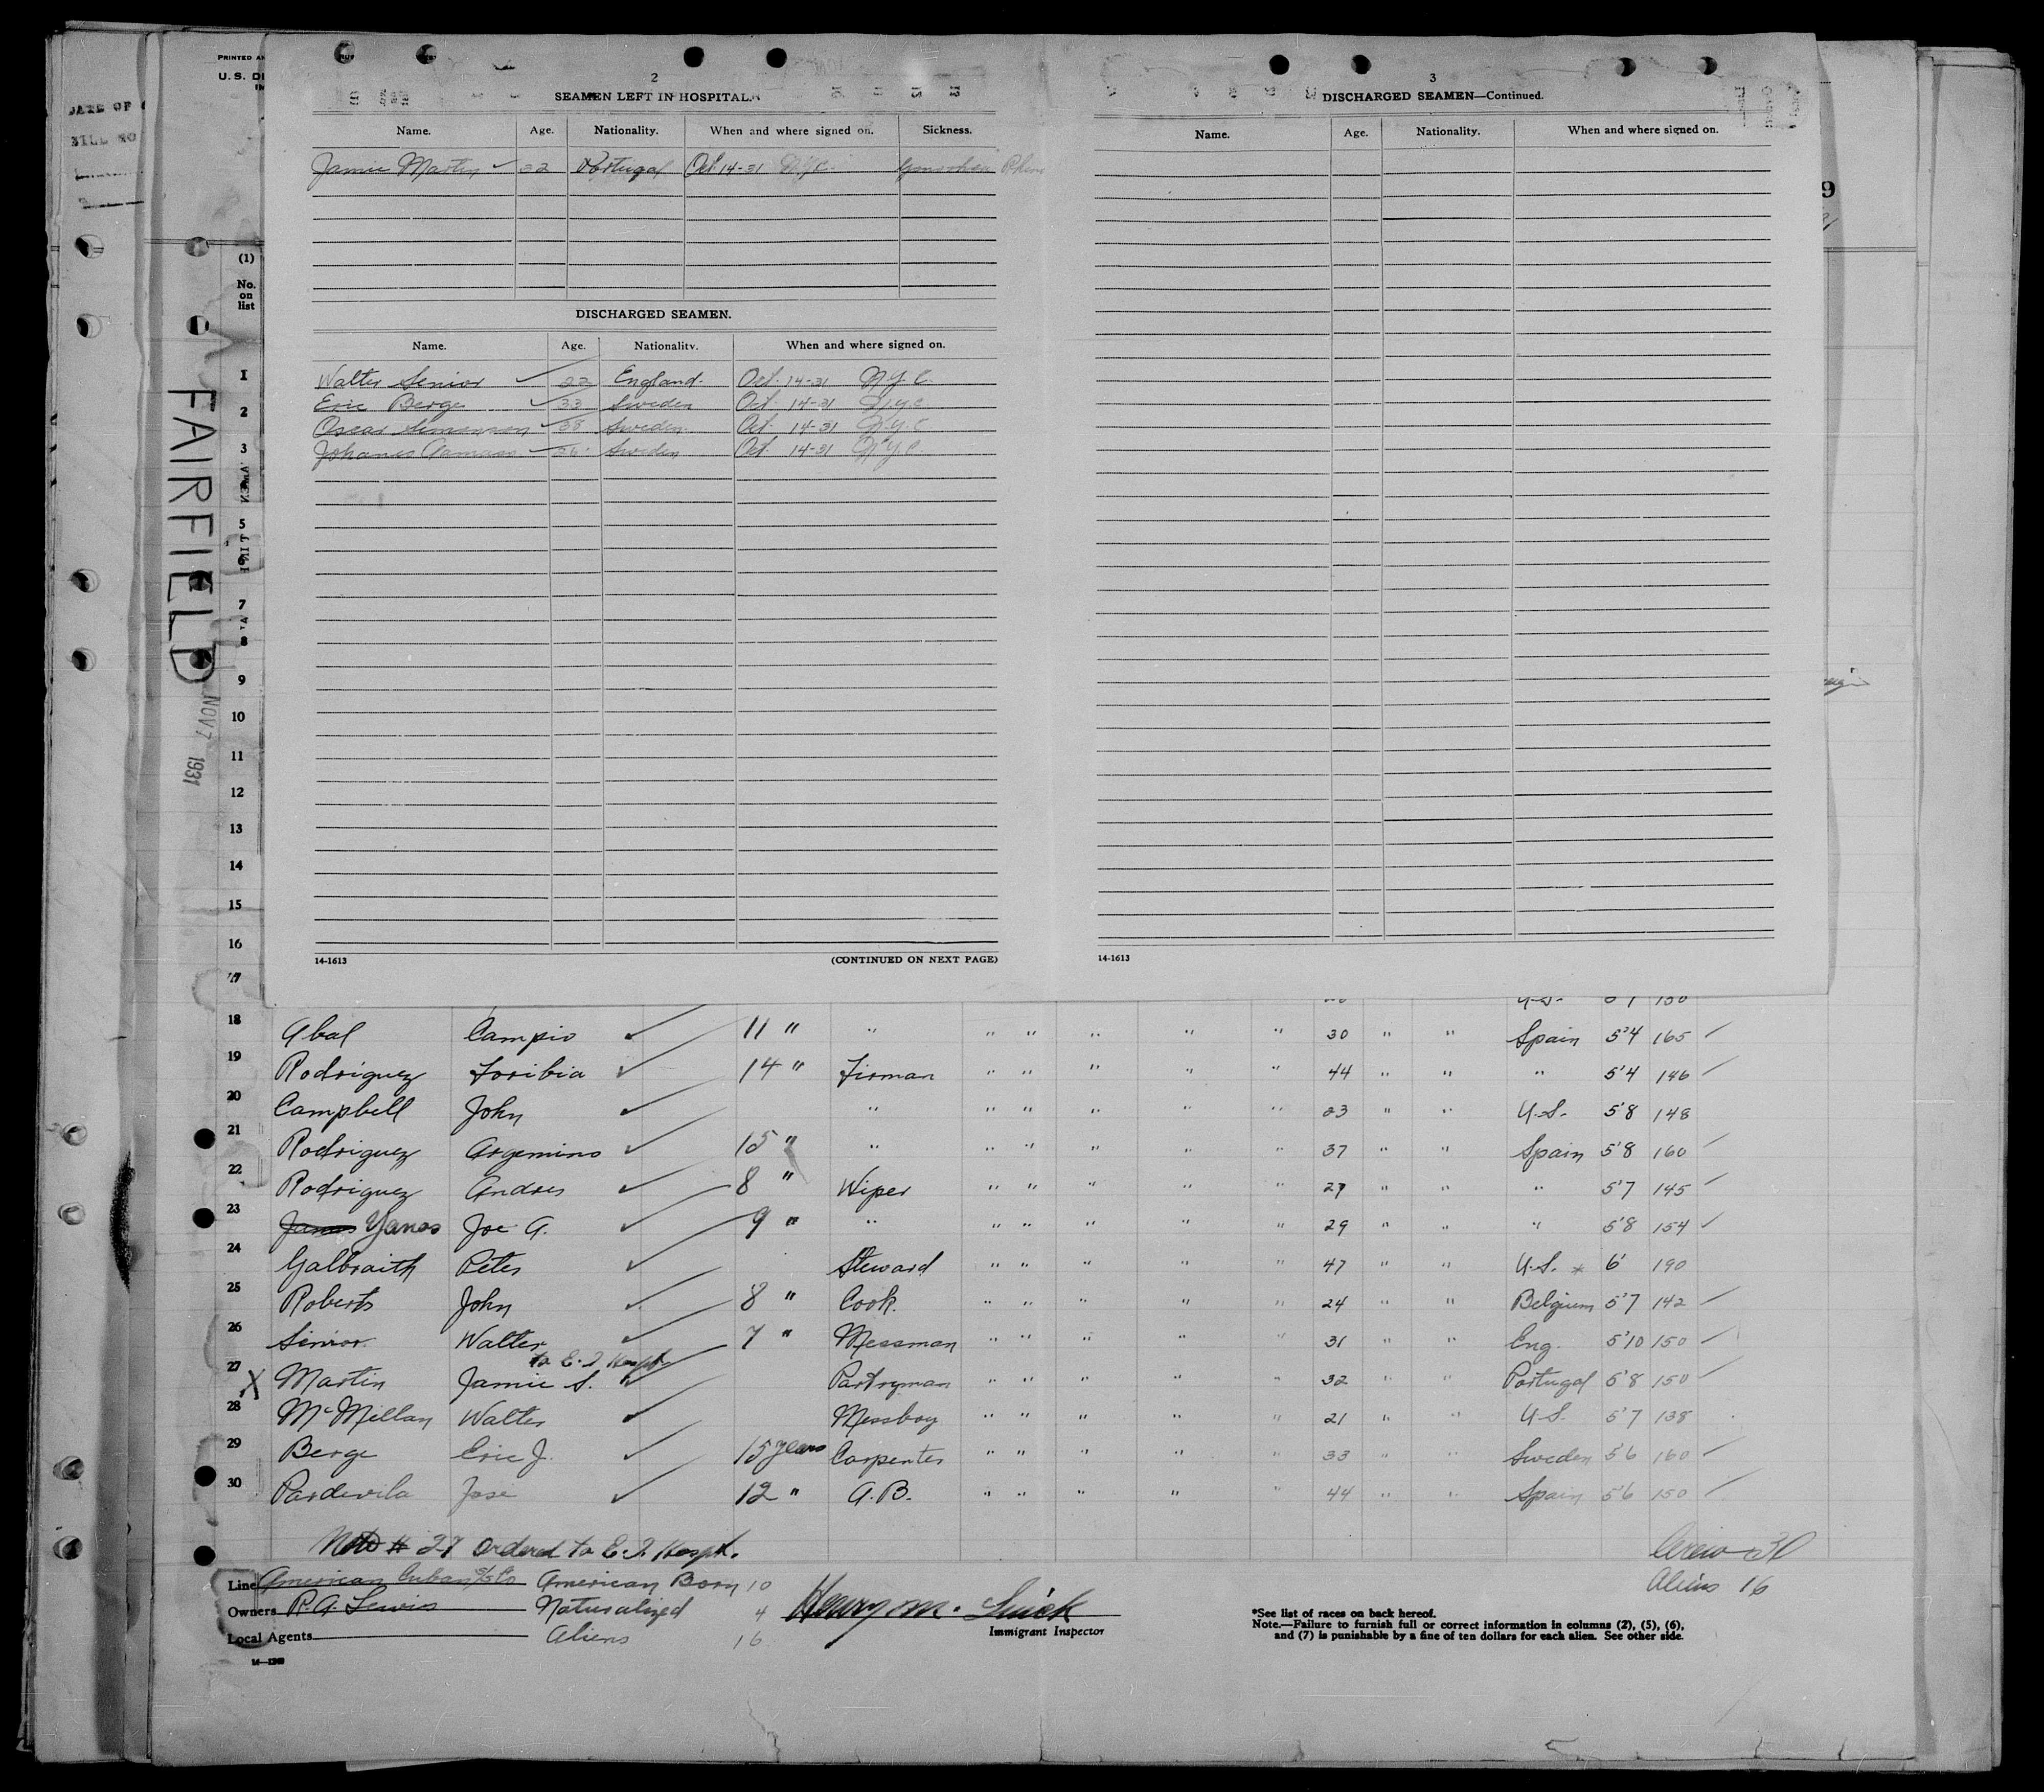 DATE OF
BILL NO
PRINTED
U.S. DE
(1)
No.
on
list
FAIRFIELD
NOV 7 1931
2
SEAMEN LEFT IN HOSPITAL.
Name. Age. Nationality. When and where signed on. Sickness.
Jamie Martin 32 Portugal Oct 14-31 N.Y.C. Gonorrhea
DISCHARGED SEAMEN.
Name. Age. Nationality. When and where signed on.
Walter Senior 22 England. Oct. 14-31 N.Y.C.
Eric Berge 33 Sweden Oct. 14-31 N.Y.C.
Oscar Simonson 38 Sweden Oct. 14-31 N.Y.C
Johanes Sweden Oct. 14-31 N.Y.C.
14-1613 (CONTINUED ON NEXT PAGE)
3
DISCHARGED SEAMEN—Continued.
Name. Age. Nationality. When and where signed on.
14-1613
9
1
2
3
5
6
7
8
9
10
11
12
13
14
15
16
17
18 Abal Campio 11 " " " " " " " 30 " " Spain 5'4 165
19 Rodriguez Toribia 14 " Firman " " " " " 44 " " " 5'4 146
20 Campbell John " " " " " " 23 " " U.S. 5'8 148
21 Rodriguez Argemino 15 " " " " " " " 37 " " Spain 5'8 160
22 Rodriguez Andres 8 " Wiper " " " " " 27 " " " 5'7 145
23 Yanes Joe A. 9 " " " " " " " 29 " " " 5'8 154
24 Galbraith Peter Steward " " " " " 47 " " U.S. * 6' 190
25 Roberts John 8 " Cook. " " " " " 24 " " Belgium 5'7 142
26 Senior Walter 7 " Messman " " " " " 31 " " Eng. 5'10 150
to E.I Hospt.
27 X Martin Jamie S. Pantryman " " " " " 32 " " Portugal 5'8 150
28 McMillan Walter Messboy " " " " " 21 " " U.S. 5'7 138
29 Berge Eric J. 15 years Carpenter " " " " " 33 " " Sweden 5'6 160
30 Pardevila Jose 12 " A.B. " " " " " 44 " " Spain 5'6 150
Note # 27 Ordered to E.I. Hospt.
Crew 30
Aliens 16
Line American Cuban S/S Co American Born 10
Owners R. A. Lewis Naturalized 4
Local Agents Aliens 16
Henry M.
Immigrant Inspector
*See list of races on back hereof.
Note.—Failure to furnish full or correct information in columns (2), (5), (6),
and (7) is punishable by a fine of ten dollars for each alien. See other side.